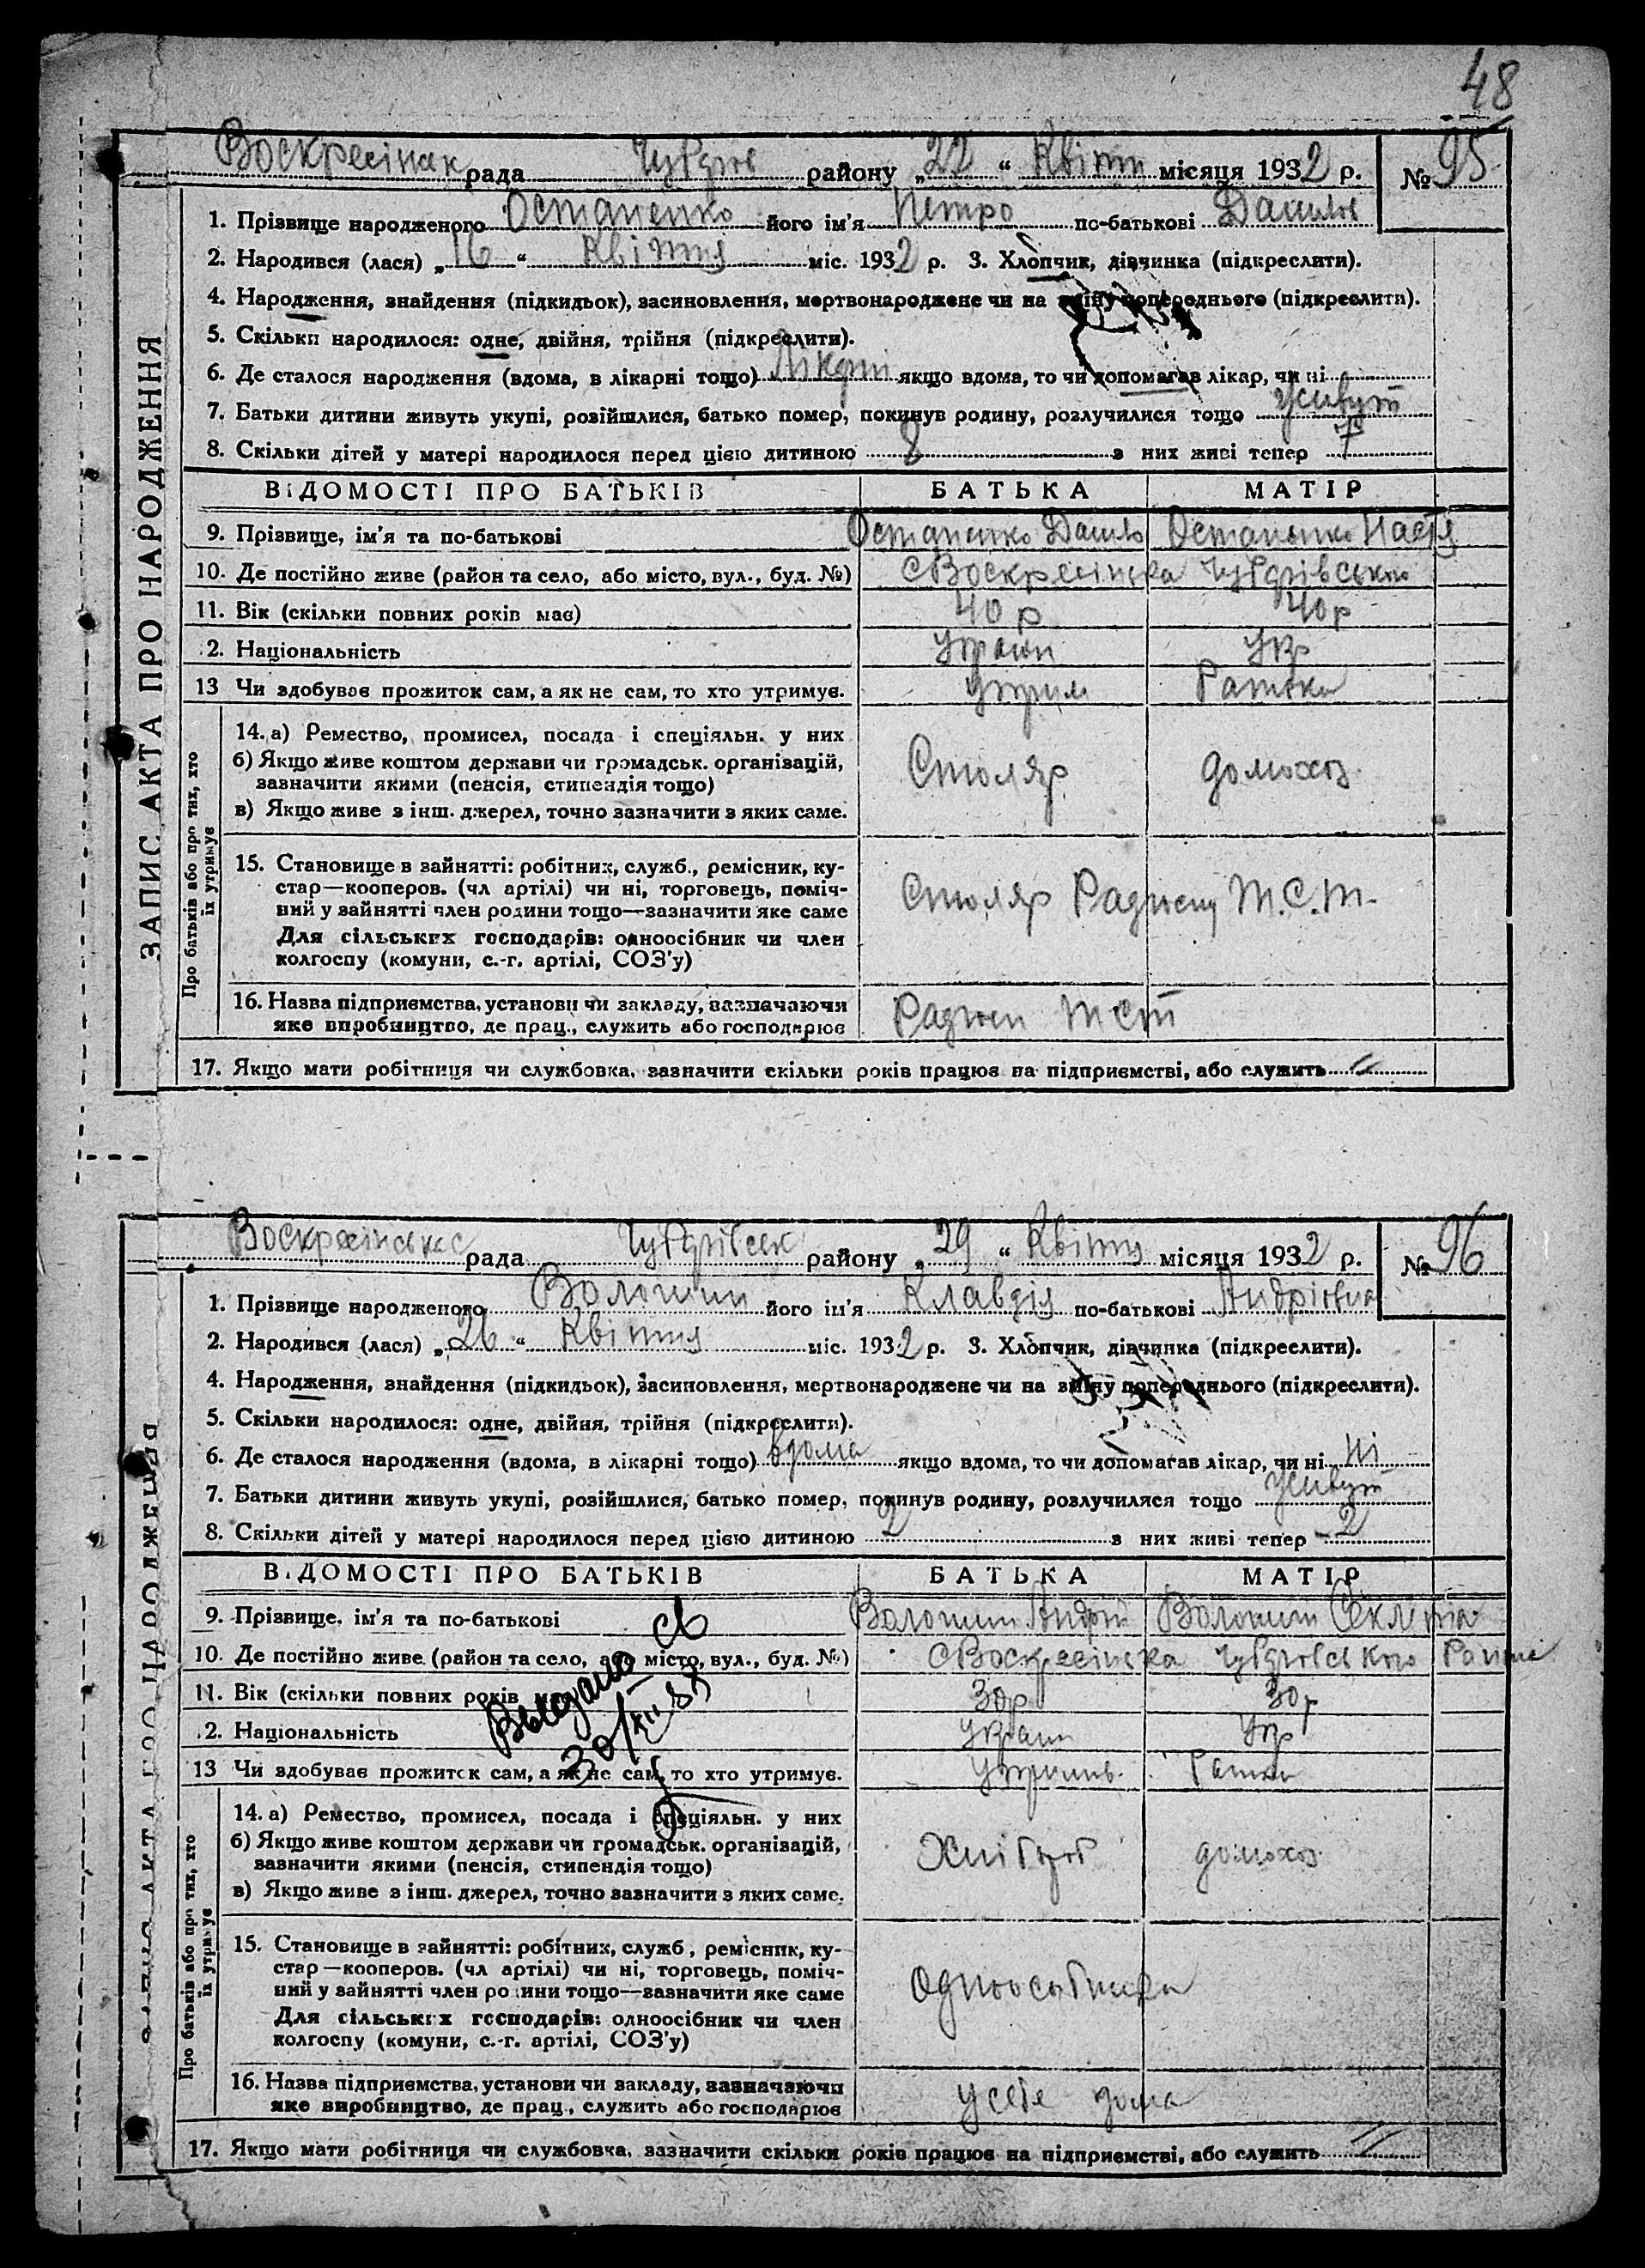 48
Воскресінск рада Чубарів району „22“ Квітн місяця 1932 р. № 95
1. Прізвище народженого Остапенко його ім'я Петро по-батькові Данилов
2. Народився (лася) „16“ Квітня міс. 1932 р. 3. Хлопчик, дівчинка (підкреслити).
4. Народження, знайдення (підкидьок), засиновлення, мертвонароджене чи на зміну попереднього (підкреслити).
5. Скільки народилося: одне, двійня, трійня (підкреслити).
6. Де сталося народження (вдома, в лікарні тощо) якщо вдома, то чи допомагав лікар, чи ні
7. Батьки дитини живуть укупі, розійшлися, батько помер, покинув родину, розлучилися тощо живут
8. Скільки дітей у матері народилося перед цією дитиною 8 з них живі тепер 7
ВІДОМОСТІ ПРО БАТЬКІВ БАТЬКА МАТІР
9. Прізвище, ім'я та по-батькові Остапенко Данило Остапенко Настя
10. Де постійно живе (район та село, або місто, вул., буд. №) с Воскресінска Чубарівського
11. Вік (скільки повних років має) 40 р 40 р
2. Національність Украин Укр
13 Чи здобував прожиток сам, а як не сам, то хто утримує. Утрим
14. а) Ремество, промисел, посада і спеціяльн. у них
б) Якщо живе коштом держави чи громадськ. організацій,
зазначити якими (пенсія, стипендія тощо)
Столяр домохоз.
в) Якщо живе з інш. джерел, точно зазначити з яких саме.
15. Становище в зайнятті: робітник, служб., ремісник, ку-
стар—кооперов. (чл артілі) чи ні, торговець, поміч-
ний у зайнятті член родини тощо—зазначити яке саме
Столяр М.С.Т.
Для сільських господарів: одноосібник чи член
колгоспу (комуни, с.-г. артілі, СОЗ'у)
16. Назва підприємства, установи чи закладу, зазначаючи
яке виробництво, де прац., служить або господарює
17. Якщо мати робітниця чи службовка, зазначити скільки років працює на підприємстві, або служить
ЗАПИС АКТА ПРО НАРОДЖЕННЯ
Про батьків або про тих, хто
їх утримує
Воскресінська рада Чубарівськ району „29“ Квітня місяця 1932 р. № 96
1. Прізвище народженого Волошин його ім'я Клавдія по-батькові Андрієвна
2. Народився (лася) „26“ Квітня міс. 1932 р. 3. Хлопчик, дівчинка (підкреслити).
4. Народження, знайдення (підкидьок), засиновлення, мертвонароджене чи на зміну попереднього (підкреслити).
5. Скільки народилося: одне, двійня, трійня (підкреслити).
6. Де сталося народження (вдома, в лікарні тощо) вдома якщо вдома, то чи допомагав лікар, чи ні ні
7. Батьки дитини живуть укупі, розійшлися, батько помер, покинув родину, розлучилися тощо живут
8. Скільки дітей у матері народилося перед цією дитиною 2 з них живі тепер 2
ВІДОМОСТІ ПРО БАТЬКІВ БАТЬКА МАТІР
9. Прізвище, ім'я та по-батькові Волошин Андрій Волошин
10. Де постійно живе (район та село, або місто, вул., буд. №) с Воскресінска Чубарівського
Выдано св
11. Вік (скільки повних років має) 30 р 30 р
2. Національність Украин Укр
13 Чи здобував прожиток сам, а як не сам, то хто утримує.
14. а) Ремество, промисел, посада і спеціяльн. у них
б) Якщо живе коштом держави чи громадськ. організацій,
зазначити якими (пенсія, стипендія тощо)
Хлібороб домохоз.
в) Якщо живе з інш. джерел, точно зазначити з яких саме.
15. Становище в зайнятті: робітник, служб., ремісник, ку-
стар—кооперов. (чл артілі) чи ні, торговець, поміч-
ний у зайнятті член родини тощо—зазначити яке саме
Для сільських господарів: одноосібник чи член
колгоспу (комуни, с.-г. артілі, СОЗ'у)
16. Назва підприємства, установи чи закладу, зазначаючи
яке виробництво, де прац., служить або господарює
у себе дома
17. Якщо мати робітниця чи службовка, зазначити скільки років працює на підприємстві, або служить
ЗАПИС АКТА ПРО НАРОДЖЕННЯ
Про батьків або про тих, хто
їх утримує